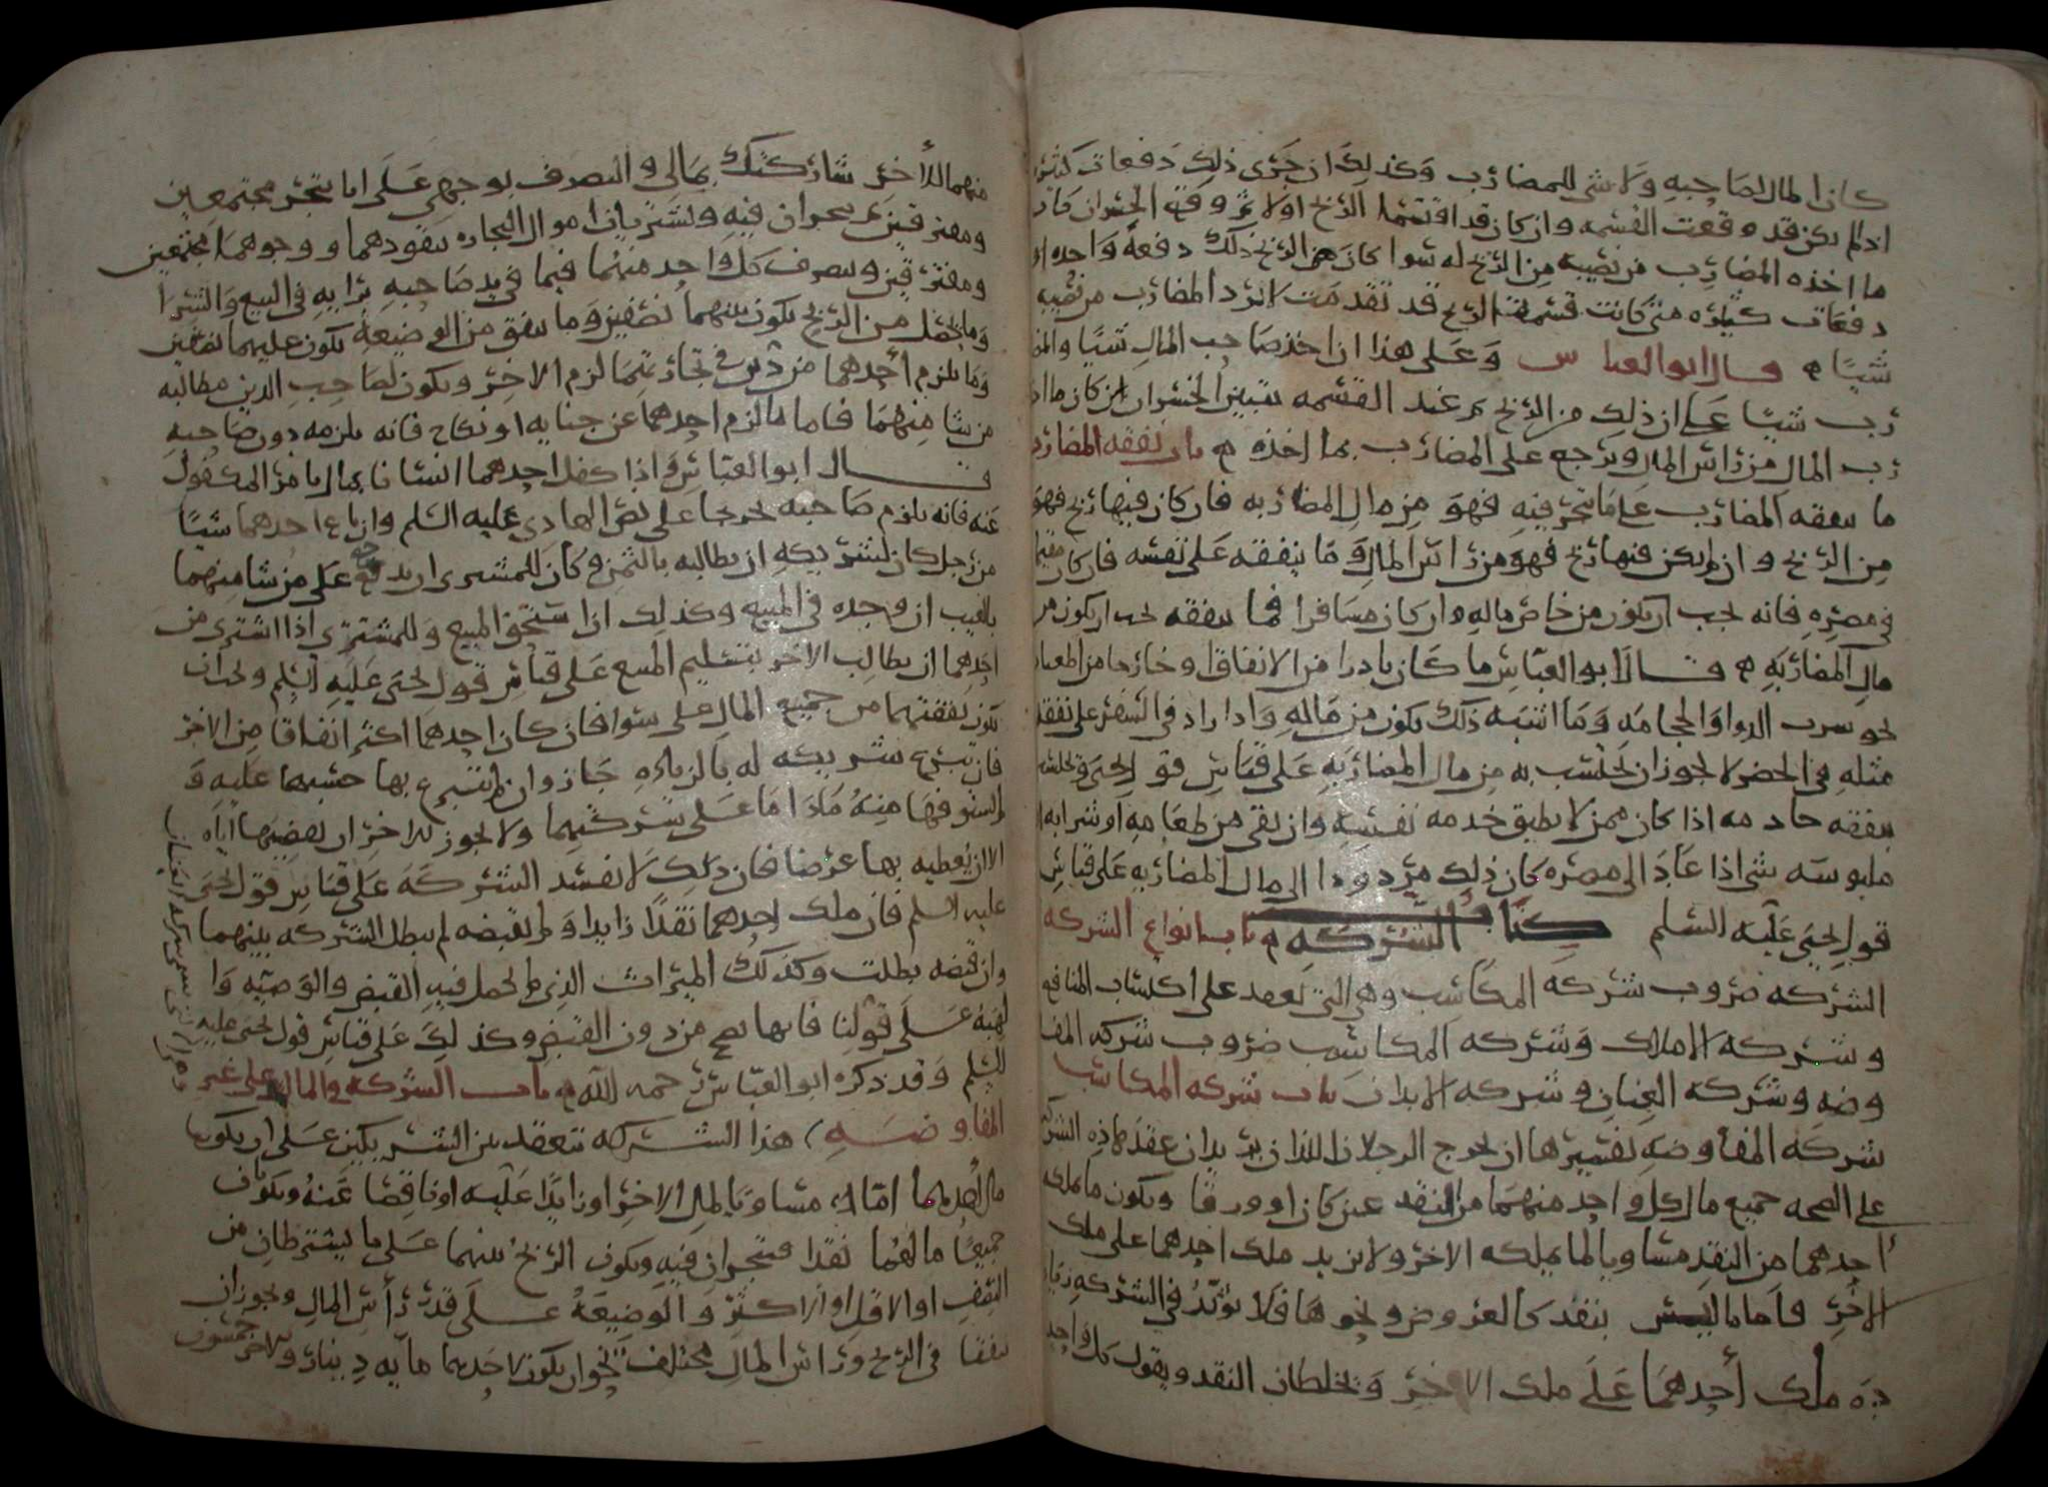 كان المال لصاحبه ولا شي للمضارب وكذلك ان جرى ذلك دفعات كثيره
اذا لم يكن قد وقعت القسمه وان كان قد اقتسما الربح اولا ثم وقع الخسران كان
ما اخذه المضارب من نصيبه من الربح له سوا كان هذا الربح ذلك دفعة واحده او
دفعات كثيره متى كانت قسمة الربح قد تقدمت لا يرد المضارب من نصيبه
شيًا قال ابو العباس وعلى هذا ان اخذ صاحب المال شيًا والمضا
رب شيًا على ان ذلك من الربح ثم عند القسمه تبين الخسران كان ما اخذ
رب المال من راس المال ويرجع على المضارب بما اخذه باب نفقه المضارب
ما ينفقه المضارب على ما يتجر فيه فهو من مال المضاربه فان كان فيها ربح فهو
من الربح وان لم يكن فيها ربح فهو من راس المال وما ينفقه على نفسه فان كان مقيما
في مصره فانه يجب ان يكون من خاص ماله وان كان مسافرا فما ينفقه يجب ان يكون من
مال المضاربه قال ابو العباس ما كان نادرا من الانفاق وخارجا من المعتاد
نحو شرب الدوا والحجامه وما اشبه ذلك يكون من ماله واذا زاد في السفر على نفقة
مثله في الحضر لا يجوز ان يحتسب به من مال المضاربه على قياس قول يحيى ويحتسب
بنفقه خادمه اذا كان ممن لا يطيق خدمه نفسه وان بقي من طعامه او شرابه او
ملبوسه شى اذا عاد الى مصره كان ذلك مردودا الى مال المضاربه على قياس
قول يحيى عليه السلم كتاب الشركه باب انواع الشركه
الشركه ضروب شركه المكاسب وهي التى تعقد على اكتساب المنافع
وشركه الاملاك وشركه المكاسب ضروب شركه المفا
وضه وشركه العنان وشركه الابدان باب شركه المكاسب
شركه المفاوضه تفسيرها ان يخرج الرجلان اللذان يريدان عقد هذه الشركه
على الصحه جميع مال كل واحد منهما من النقد عين كان او ورقا ويكون ما يملكه
احدهما من النقد مساويا لما يملكه الاخر ولا يزيد ملك احدهما على ملك
الاخر فاما ما ليس بنقد كالعروض ونحوها فلا يؤثر في الشركه زيا
دة ملك أحدهما على ملك الاخر ويخلطان النقد ويقول كل واحد
منهما للأخر شاركتك بمالي والتصرف بوجهي على ان نتجر مجتمعين
ومفترقين ثم يتجران فيه ويشتريان اموال التجاره بنقودهما ووجوههما مجتمعين
ومفترقين ويتصرف كل واحد منهما فيما في يد صاحبه برايه في البيع والشرا
وما يحصل من الربح يكون بينهما نصفين وما يتفق من الوضيعه يكون عليهما نصفين
وما يلزم أحدهما من دين في تجارتهما لزم الاخر ويكون لصاحب الدين مطالبه
من شا منهما فاما ما لزم احدهما عن جنايه او نكاح فانه يلزمه دون صاحبه
قال ابو العباس واذا كفل احدهما انسانا بمال بامر المكفول
عنه فانه يلزم صاحبه تخريجا على نص الهادي عليه السلم وان باع احدهما شيًا
من رجل كان لشريكه ان يطالبه بالثمن وكان للمشترى ان يرجع على من شا منهما
بالعيب ان وجده في المبيع وكذلك اذا استحق المبيع وللمشترى اذا اشترى من
احدهما ان يطالب الاخر بتسليم المبيع على قياس قول يحيى عليه السلم ويجب ان
تكون نفقتهما من جميع المال على سوا فان كان احدهما اكثر انفاقا من الاخر
فان تبرع شريكه له بالزياده جاز وان لم يتبرع بها حسبها عليه و
لم يستوفها منه ما داما على شركتهما ولا يجوز للاخر ان يقضيها اياه
الا ان يعطيه بها عرضا فان ذلك لا يفسد الشركه على قياس قول يحيى
عليه السلم فان ملك احدهما نقدًا زايدا ولم يقبضه لم يبطل الشركه بينهما
وان قبضه بطلت وكذلك الميراث الذي لم يحصل فيه القبض والوصيه وا
لهبه على قولنا فانها تصح من دون القبض وكذلك على قياس قول يحيى عليه
السلم وقد ذكره ابو العباس رحمه الله باب الشركه في المال على غير
المفاوضه هذا الشركه تنعقد بين الشريكين على ان يكون
مال احدهما اما مساويا لمال الاخر او زايدًا عليه او ناقصا عنه ويكونان
جميعًا مالهما نقدا فيتجران فيه ويكون الربح بينهما على ما يشترطان من
النصف او الاقل او الاكثر والوضيعة على قدر رأس المال ويجوز ان
يتفقا في الربح وراس المال مختلف نحو ان يكون لاحدهما مايه دينار وللاخر خمسون